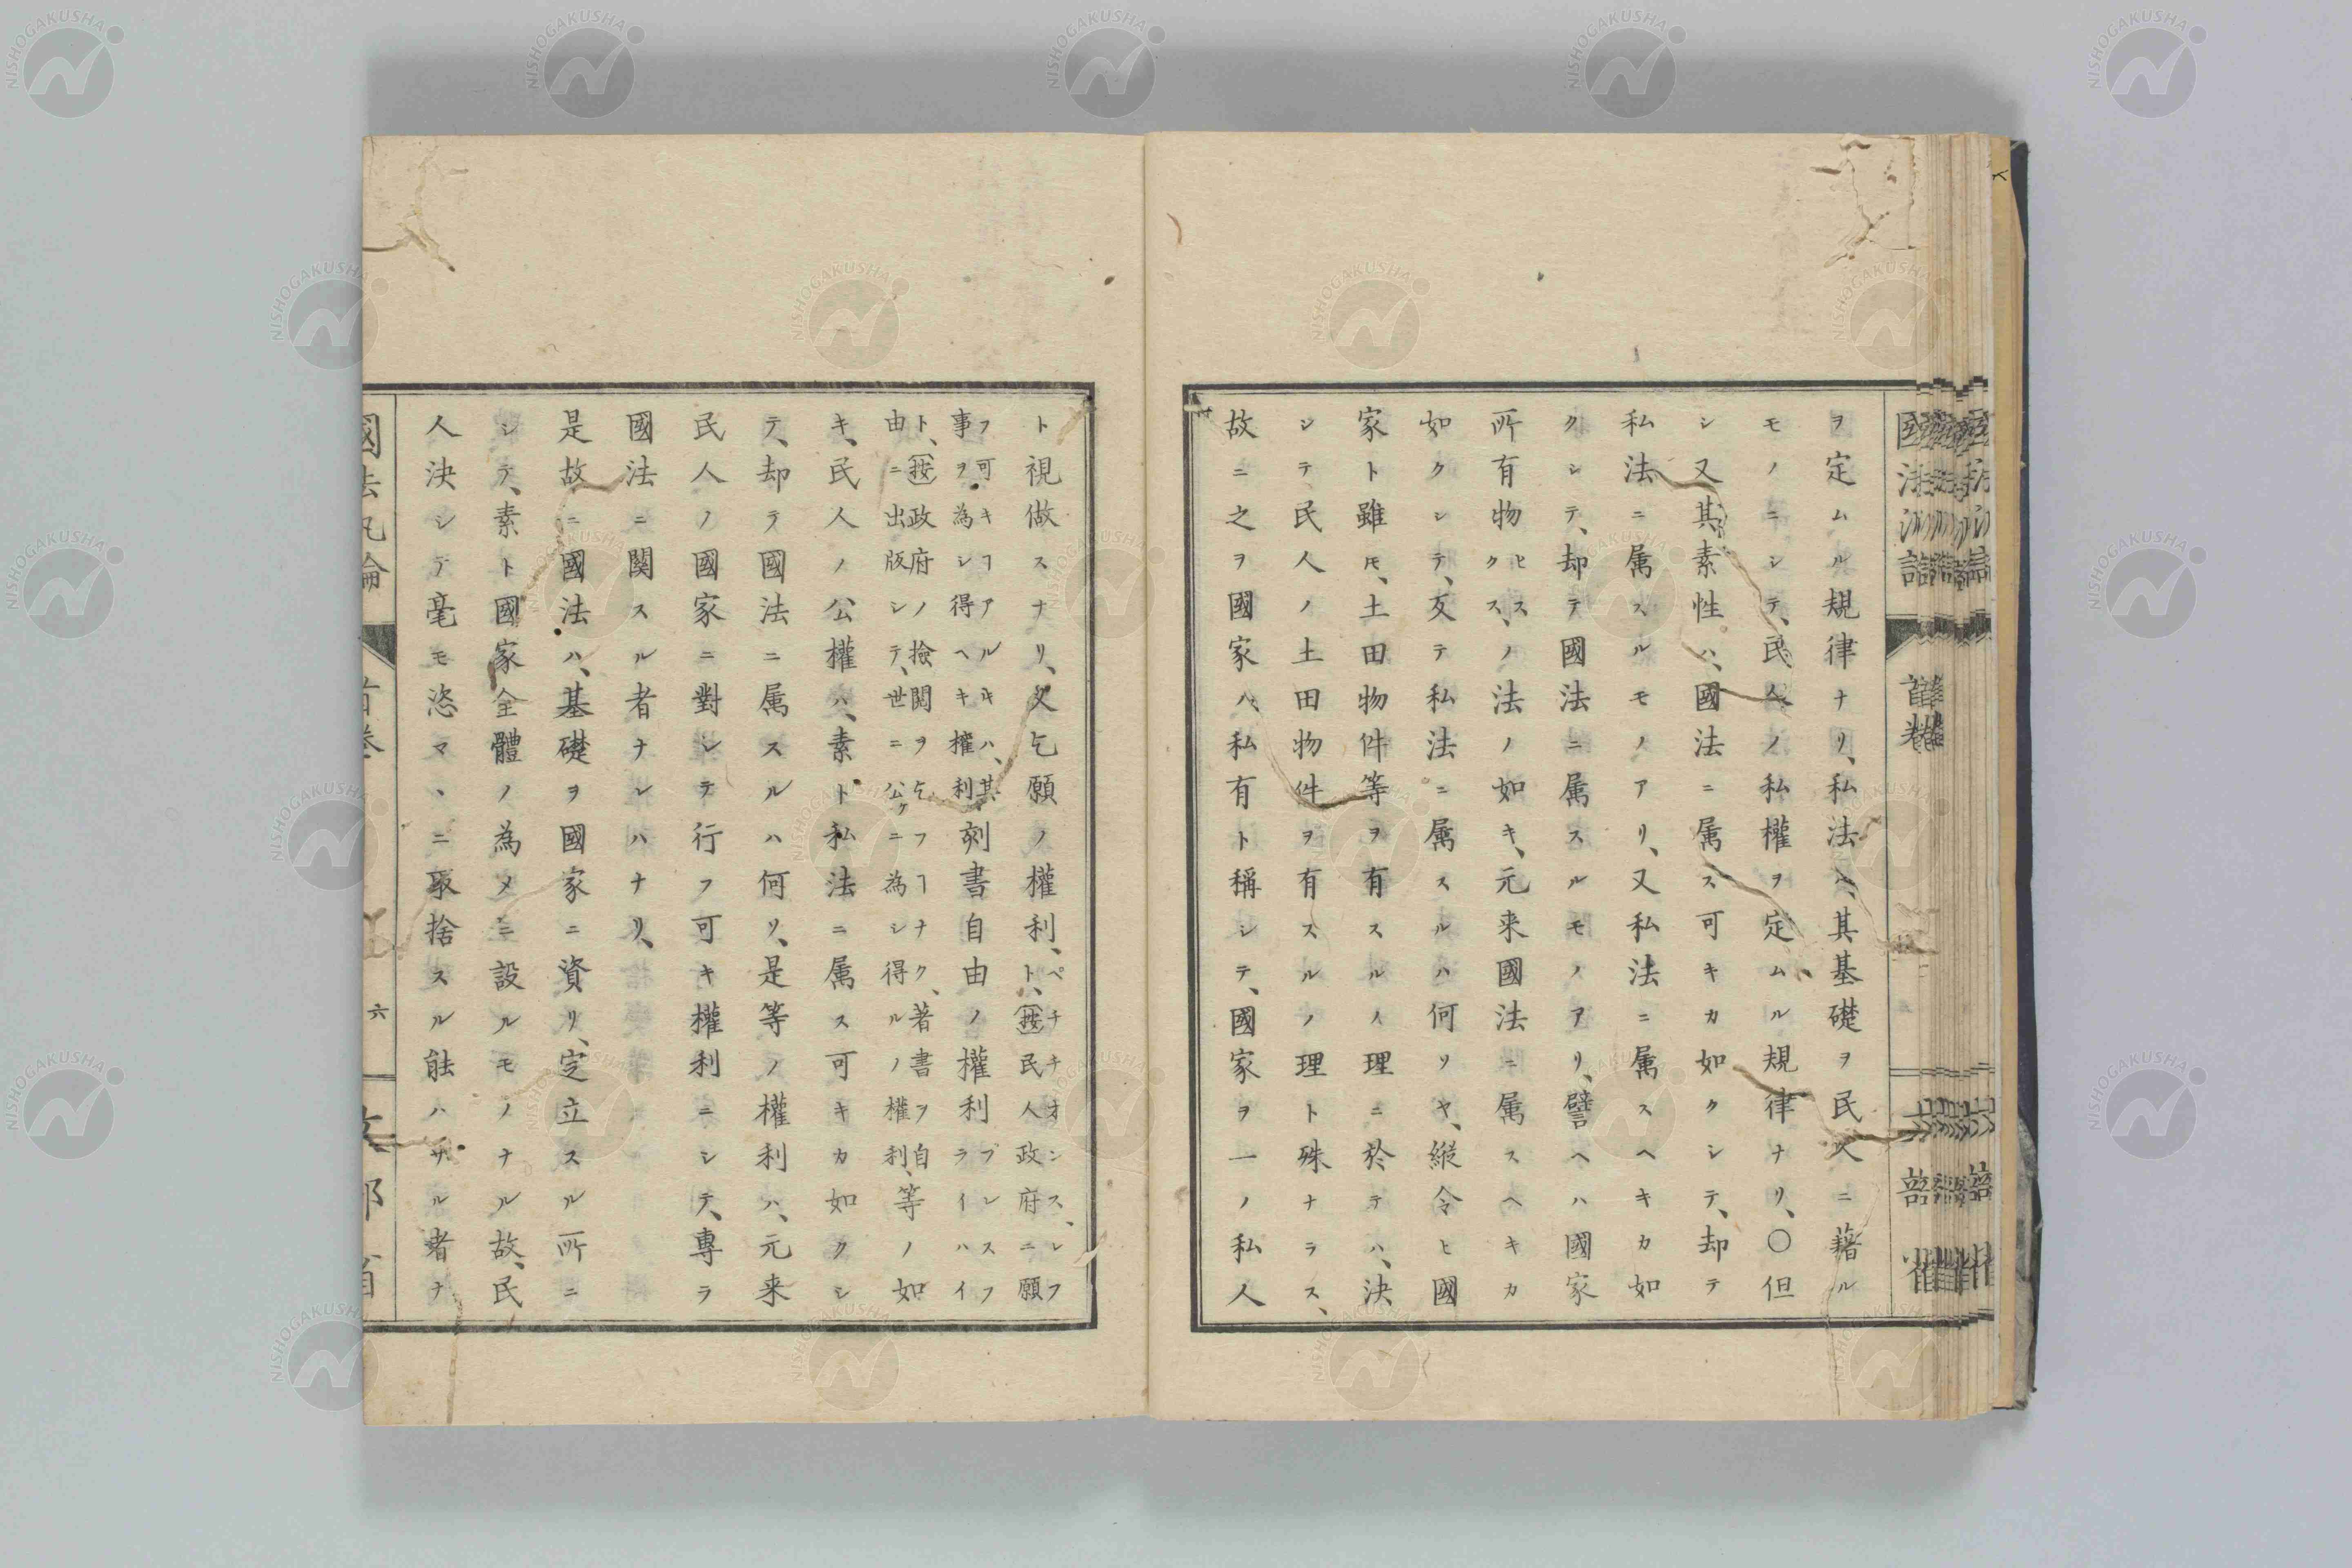 ヲ定ムル規律ナリ、私法ハ、其基礎ヲ民人ニ藉ル
モノニシテ、民人ノ私權ヲ定ムル規律ナリ、〇但
シ又其素性ハ、國法ニ属ス可キカ如クシテ、却テ
私法ニ属スルモノアリ、又私法ニ属スヘキカ如
クシテ、却テ國法ニ属スルモノアリ、譬ヘハ國家
所有物ヒスクス、ノ法ノ如キ、元来國法ニ属スヘキカ
如クシテ、反テ私法ニ属スルハ何リヤ、縦令ヒ國
家ト雖モ、土田物件等ヲ有スルノ理ニ於テハ、決
シテ民人ノ土田物件ヲ有スルノ理ト殊ナラス、
故ニ之ヲ國家ハ私有ト稱シテ、國家ヲ一ノ私人
ト視做スナリ、又乞願ノ權利、ペチチオンス、レフト、按民人政府ニ願
フ可キヿアルキハ、其事ヲ為シ得ヘキ權利刻書自由ノ權利プレスフライハイ
ト、按政府ノ撿閲ヲ乞フヿナク、著書ヲ自由ニ出版シテ、世ニ公ケニ為シ得ルノ權利、等ノ如
キ、民人ノ公權ハ、素ト私法ニ属ス可キカ如クシ
テ、却テ國法ニ属スルハ何リ、是等ノ權利ハ、元来
民人ノ國家ニ對シテ行フ可キ權利ニシテ、專ラ
國法ニ関スル者ナレハナリ、
是故ニ國法ハ、基礎ヲ國家ニ資リ、定立スル所ニ
シテ、素ト國家全體ノ為メニ設ルモノナル故、民
人決シテ毫モ恣マヽニ取捨スル能ハサル者ナ
國法汎論
首巻
六
文部省
NISHOGAKUSHA